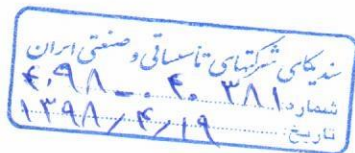 سندیکای شرکتهای تأسیساتی و صنعتی ایران
شماره ۴۰۹۸-۰۴۰۳۸۱
تاریخ ۱۳۹۸/۴/۱۹